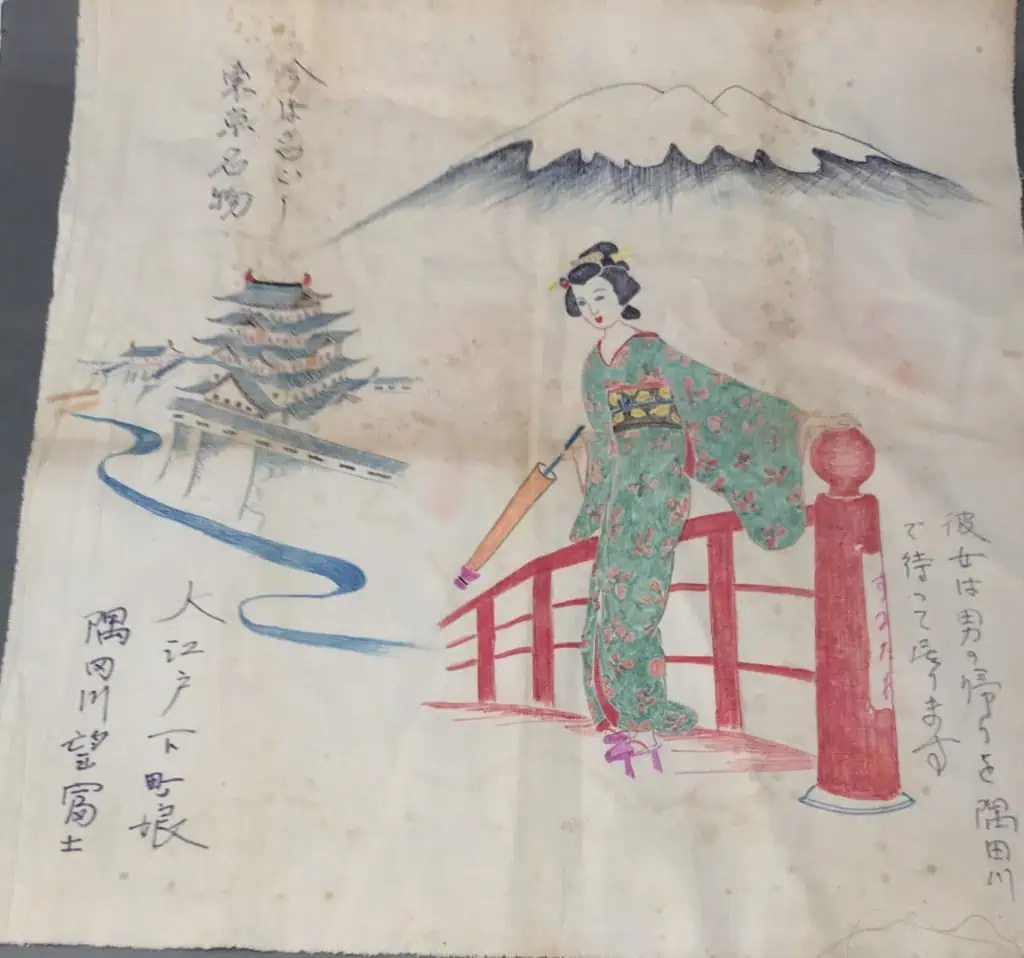 彼女は男の帰りを隅田川
で待って居ります
今は
東京名物
江戸下町娘
隅田川望富士